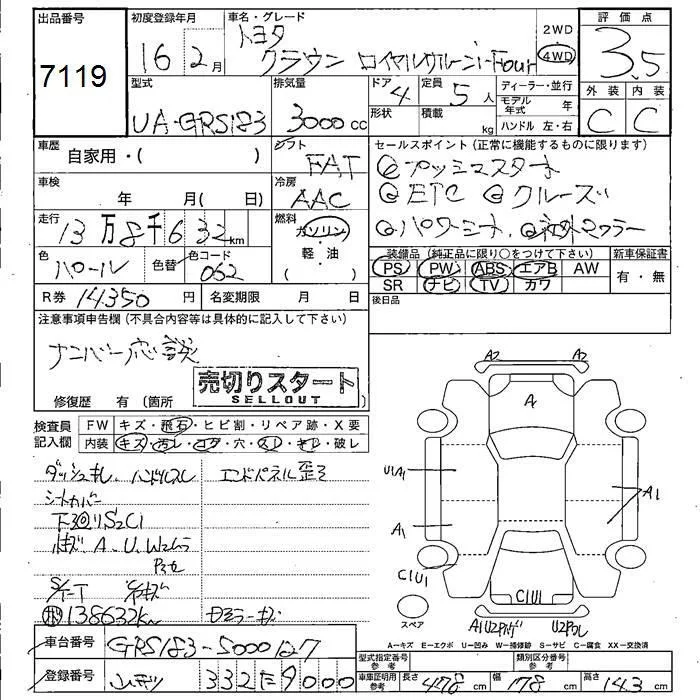 出品番号 7119
初度登録年月 16年 2月
車名・グレード トヨタ クラウン ロイヤルサルーンi-Four
2WD 4WD
評価点 3.5
外装 C 内装 C
型式 UA-GRS183
排気量 3000cc
ドア 4 形状
定員 5人 積載 kg
ディーラー・並行
モデル年式 年
ハンドル 左・右
車歴 自家用・( )
シフト FAT
車検 年 月( 日)
冷房 AAC
走行 13万8千632km
燃料 ガソリン・軽・油
色 パール 色替 色コード 062
R券 14,350円 名変期限 月 日
セールスポイント(正常に機能するものに限ります)
ETC クルーズ
パワーシート 社外マフラー
装備品(純正品に限り○をつけて下さい)
PS PW ABS エアB AW
SR ナビ TV カワ
新車保証書 有・無
後日品
注意事項申告欄(不具合内容等は具体的に記入して下さい)
ナンバー応談
修復歴 有(箇所
売切りスタート
SELLOUT
検査員記入欄
FW キズ・飛石・ヒビ割・リペア跡・X要
内装 キズ・汚レ・コゲ・穴・スレ・キレ・破レ
ダッシュキレ ハンドルスレ エンドパネル歪ミ
シートカバー
下廻りS2C1
A、U、W2ムラ
138632km
A2 A2
A
U1A1 A1
A1
C1U1 C1U1
スペア
A1U2
A=キズ E=エクボ U=凹み W=補修跡 S=サビ C=腐食 XX=交換済
車台番号 GRS183-5000127
登録番号 332 た 9000
型式指定番号 参考
類別区分番号 参考
車庫証明用 参考 長さ 478cm 幅 178cm 高さ 143cm